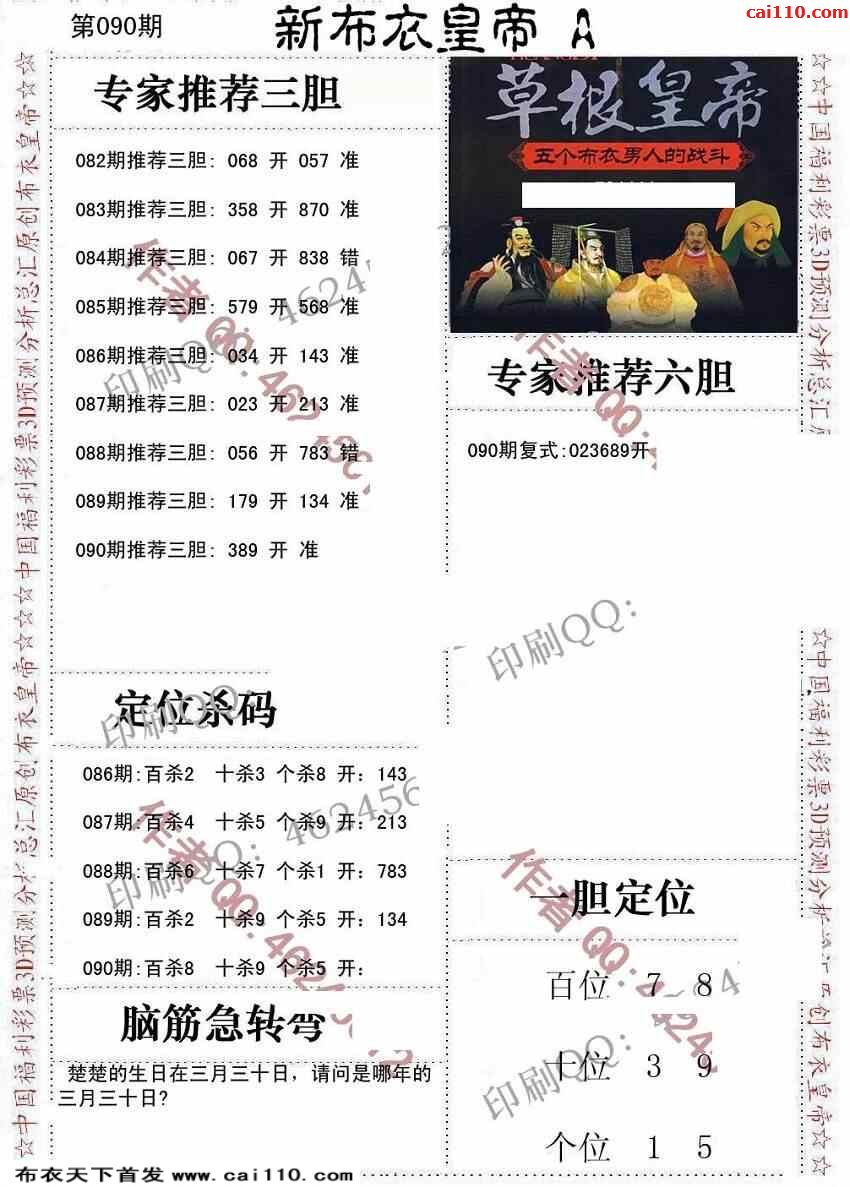 cai110.com
第090期
新布衣皇帝 A
专家推荐三胆
082期推荐三胆: 068 开 057 准
083期推荐三胆: 358 开 870 准
084期推荐三胆: 067 开 838 错
085期推荐三胆: 579 开 568 准
086期推荐三胆: 034 开 143 准
087期推荐三胆: 023 开 213 准
088期推荐三胆: 056 开 783 错
089期推荐三胆: 179 开 134 准
090期推荐三胆: 389 开 准
草根皇帝
五个布衣男人的战斗
专家推荐六胆
090期复式:023689开
定位杀码
086期:百杀2 十杀3 个杀8 开: 143
087期:百杀4 十杀5 个杀9 开:213
088期:百杀6 十杀7 个杀1 开: 783
089期:百杀2 十杀9 个杀5 开: 134
090期:百杀8 十杀9 个杀5 开:
一胆定位
百位 7 8
十位 3 9
个位 1 5
脑筋急转弯
楚楚的生日在三月三十日, 请问是哪年的
三月三十日?
布衣天下首发 www.cai110.com
☆中国福利彩票3D预测分析总汇原创布衣皇帝☆☆☆中国福利彩票3D预测分析总汇原创布衣皇帝☆☆
☆中国福利彩票3D预测分析总汇原
☆中国福利彩票3D预测分析总汇原创布衣皇帝☆☆
印刷QQ: 46245
作者QQ:462
印刷QQ:
印刷QQ: 462456
作者QQ:4624
作者QQ:
印刷QQ: